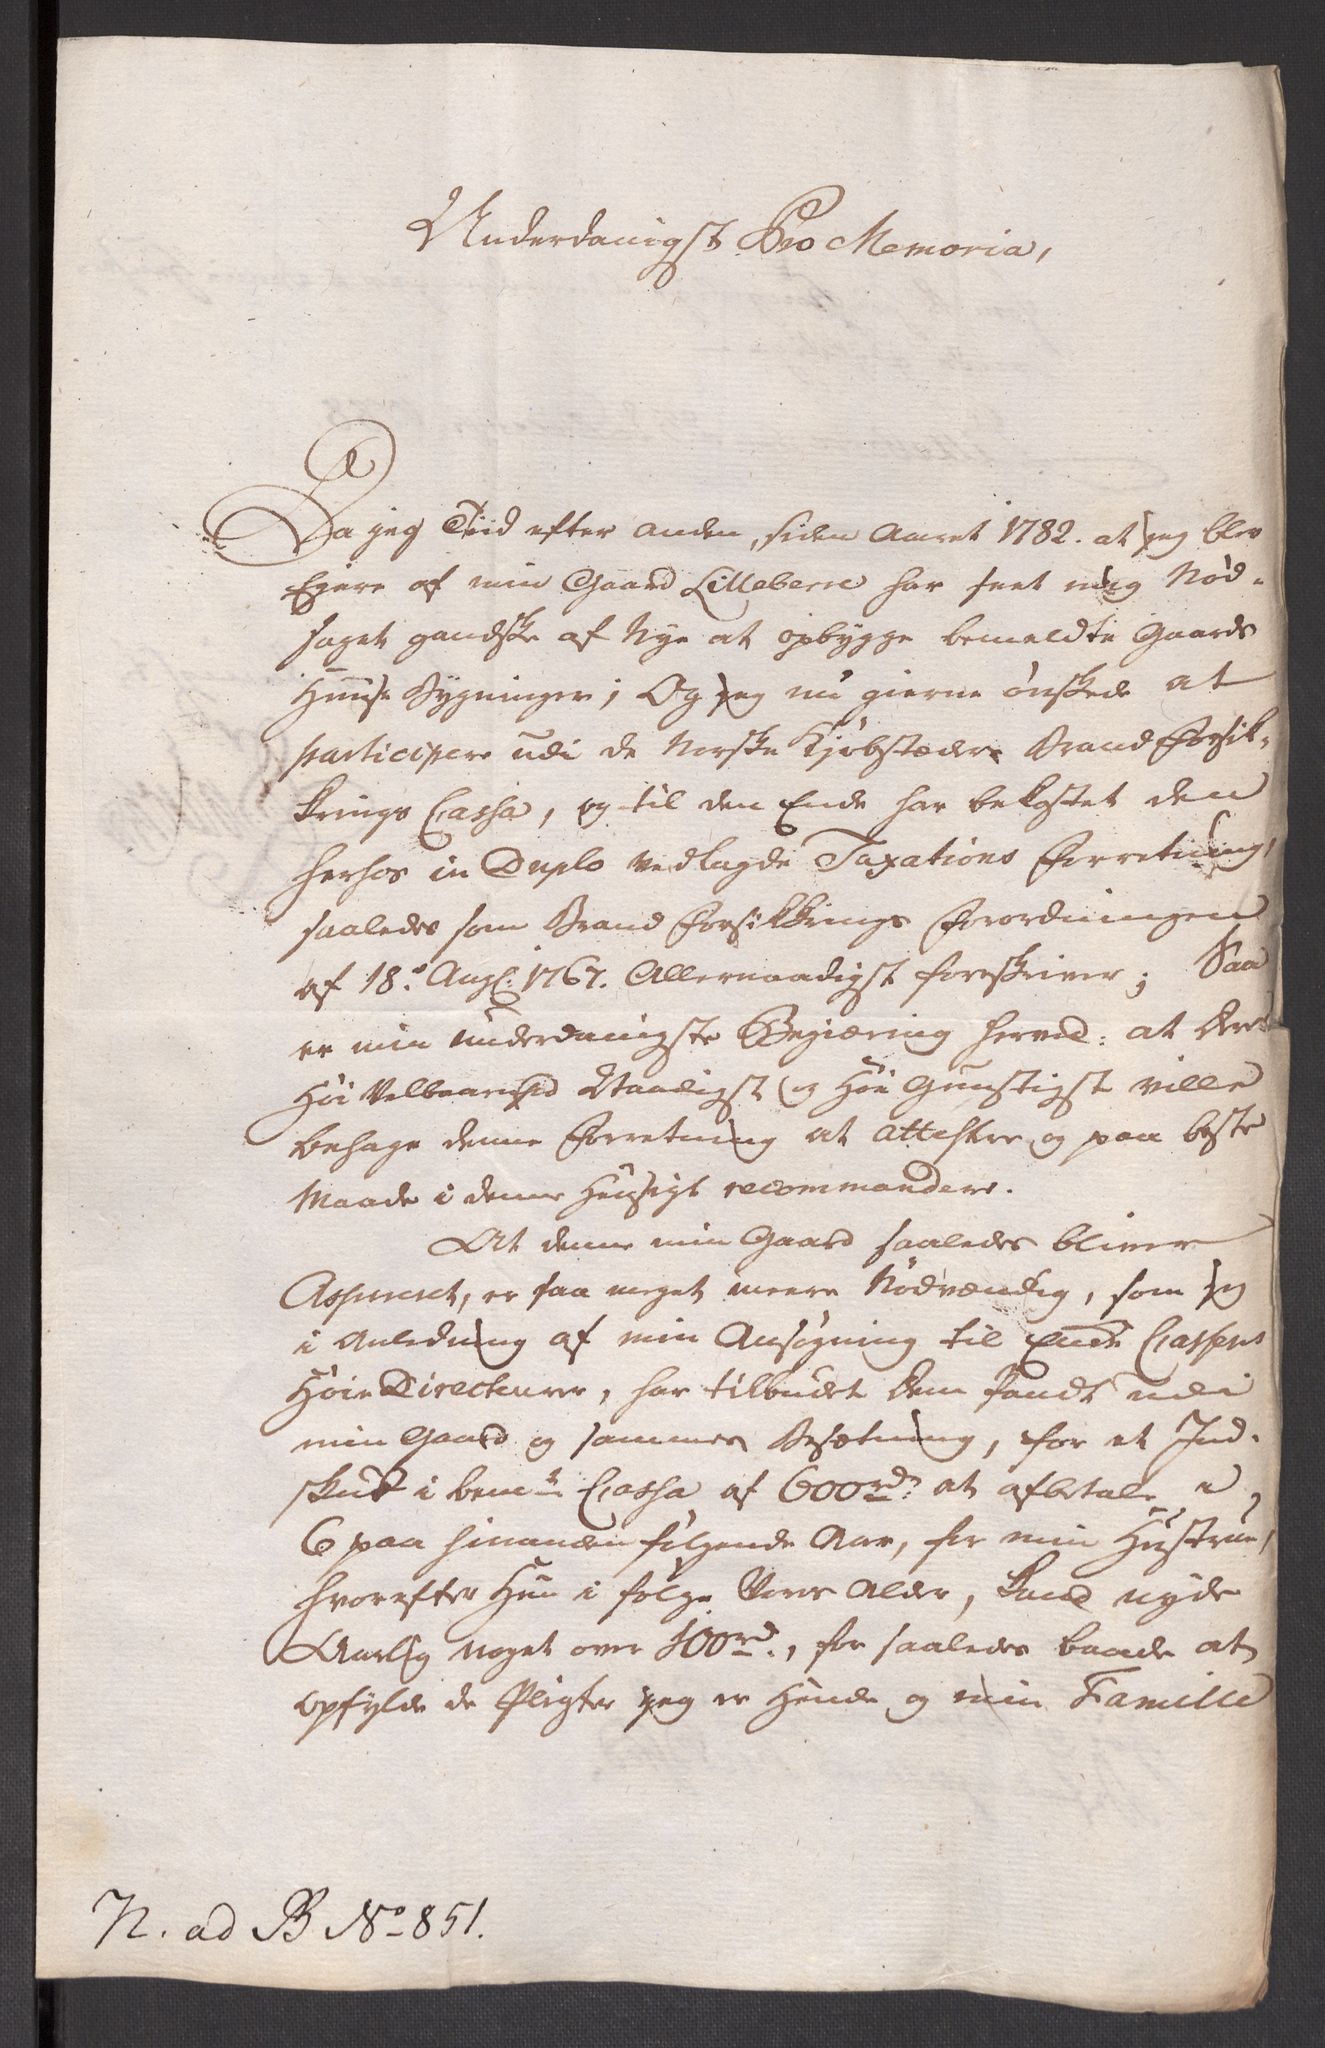 Underdanigst Pro Memoria,
Da jeg Tiid efter anden, siden Aaret 1782. at jeg blev
Ejere af min Gaard Lilleberre har seet mig Nød-
saget gandske af Nye at opbygge bemeldte Gaards
Huuse Bygninger; Og jeg nu gierne ønskede at
participere udi de Norske Kjøbstæders Brand Forsik-
krings Cassa, og til den Ende har bekostet den
herhos in Duplo vedlagde Taxations Forretning,
saaledes som Brand Forsikkrings Forordningen
af 18.de Aug. 1767. Allernaadigst foreskriver; Saa
er min underdanigste Begiæring herved: at Deres
Høi Velbaarenhed Naadigst og Høi Gunstigst ville
behage denne Forretning at attestere og paa beste
Maade i denne Hensigt recommandere.
At denne min Gaard saaledes bliver
Assureret, er saa meget meere Nødvændig, som jeg
i Anledning af min Ansøgning til Enke Cassens
Høie Directeurer, har tilbudet dem Pandt udi
min Gaard og sammes Besætning, for et Ind-
skud i bemte Cassa af 600rd. at afbetale i
6 paa hinanden følgende Aar, for min Hustrue,
hvorefter Hun i følge Vores Alder, kand nyde
Aarlig noget over 100rd., for saaledes baade at
opfylde de Pligter jeg er Hende og min Familie
N. ad B No 851.